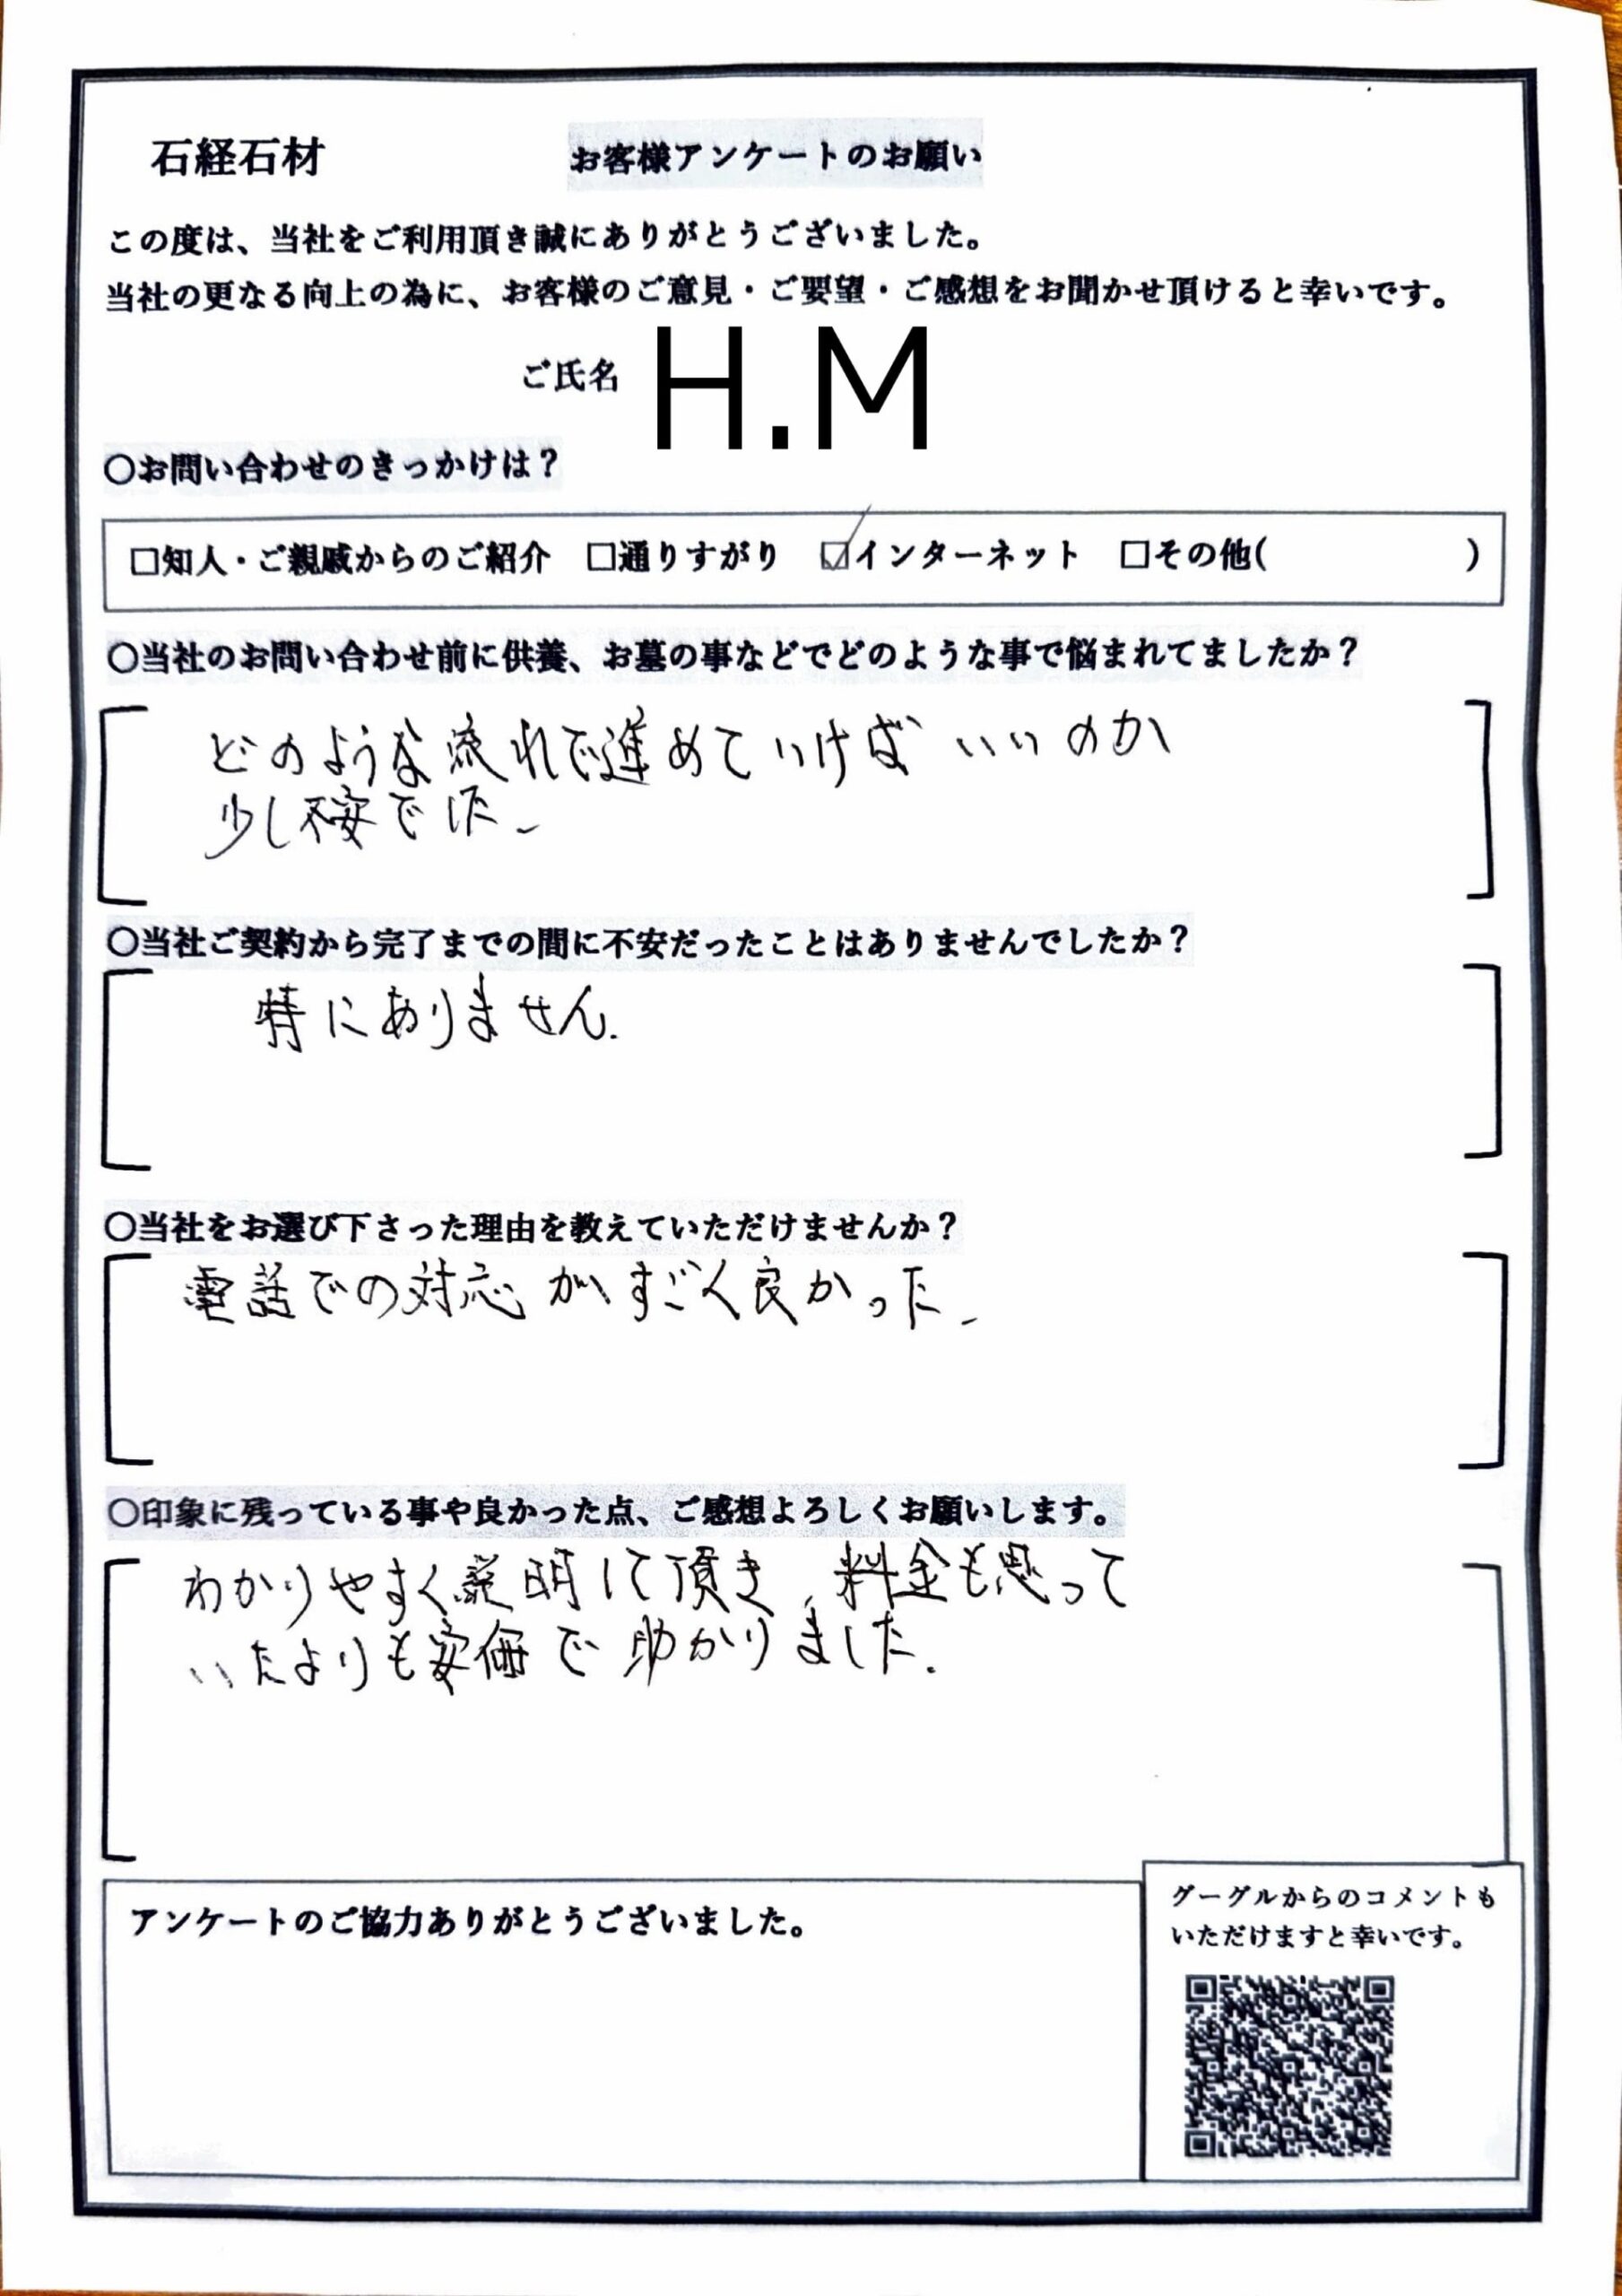 石経石材 お客様アンケートのお願い
この度は、当社をご利用頂き誠にありがとうございました。
当社の更なる向上の為に、お客様のご意見・ご要望・ご感想をお聞かせ頂けると幸いです。
ご氏名 H.M
○お問い合わせのきっかけは？
□知人・ご親戚からのご紹介 □通りすがり ☑インターネット □その他( )
○当社のお問い合わせ前に供養、お墓の事などでどのような事で悩まれてましたか？
どのような流れで進めていけばいいのか
少し不安でした。
○当社ご契約から完了までの間に不安だったことはありませんでしたか？
特にありません.
○当社をお選び下さった理由を教えていただけませんか？
電話での対応がすごく良かった。
○印象に残っている事や良かった点、ご感想よろしくお願いします。
わかりやすく説明して頂き、料金も思って
いたよりも安価で助かりました.
アンケートのご協力ありがとうございました。
グーグルからのコメントも
いただけますと幸いです。